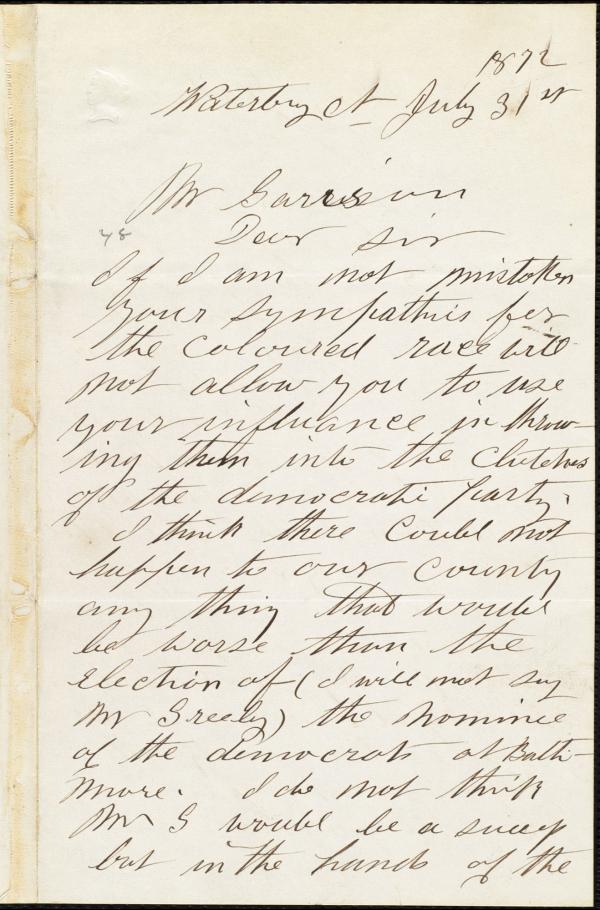 1872
Waterbury Ct July 31st
Mr Garrison
48
Dear Sir
If I am not mistaken
your sympathis for
the coloured race will
not allow you to use
your influance in throw-
ing them into the clutches
of the democratic party.
I think there could not
happen to our county
any thing that would
be worse than the
Election of (I will not say
Mr Greely) the nominee
of the democrats at Balti-
more. I do not think
Mr G would be a success
but in the hands of the